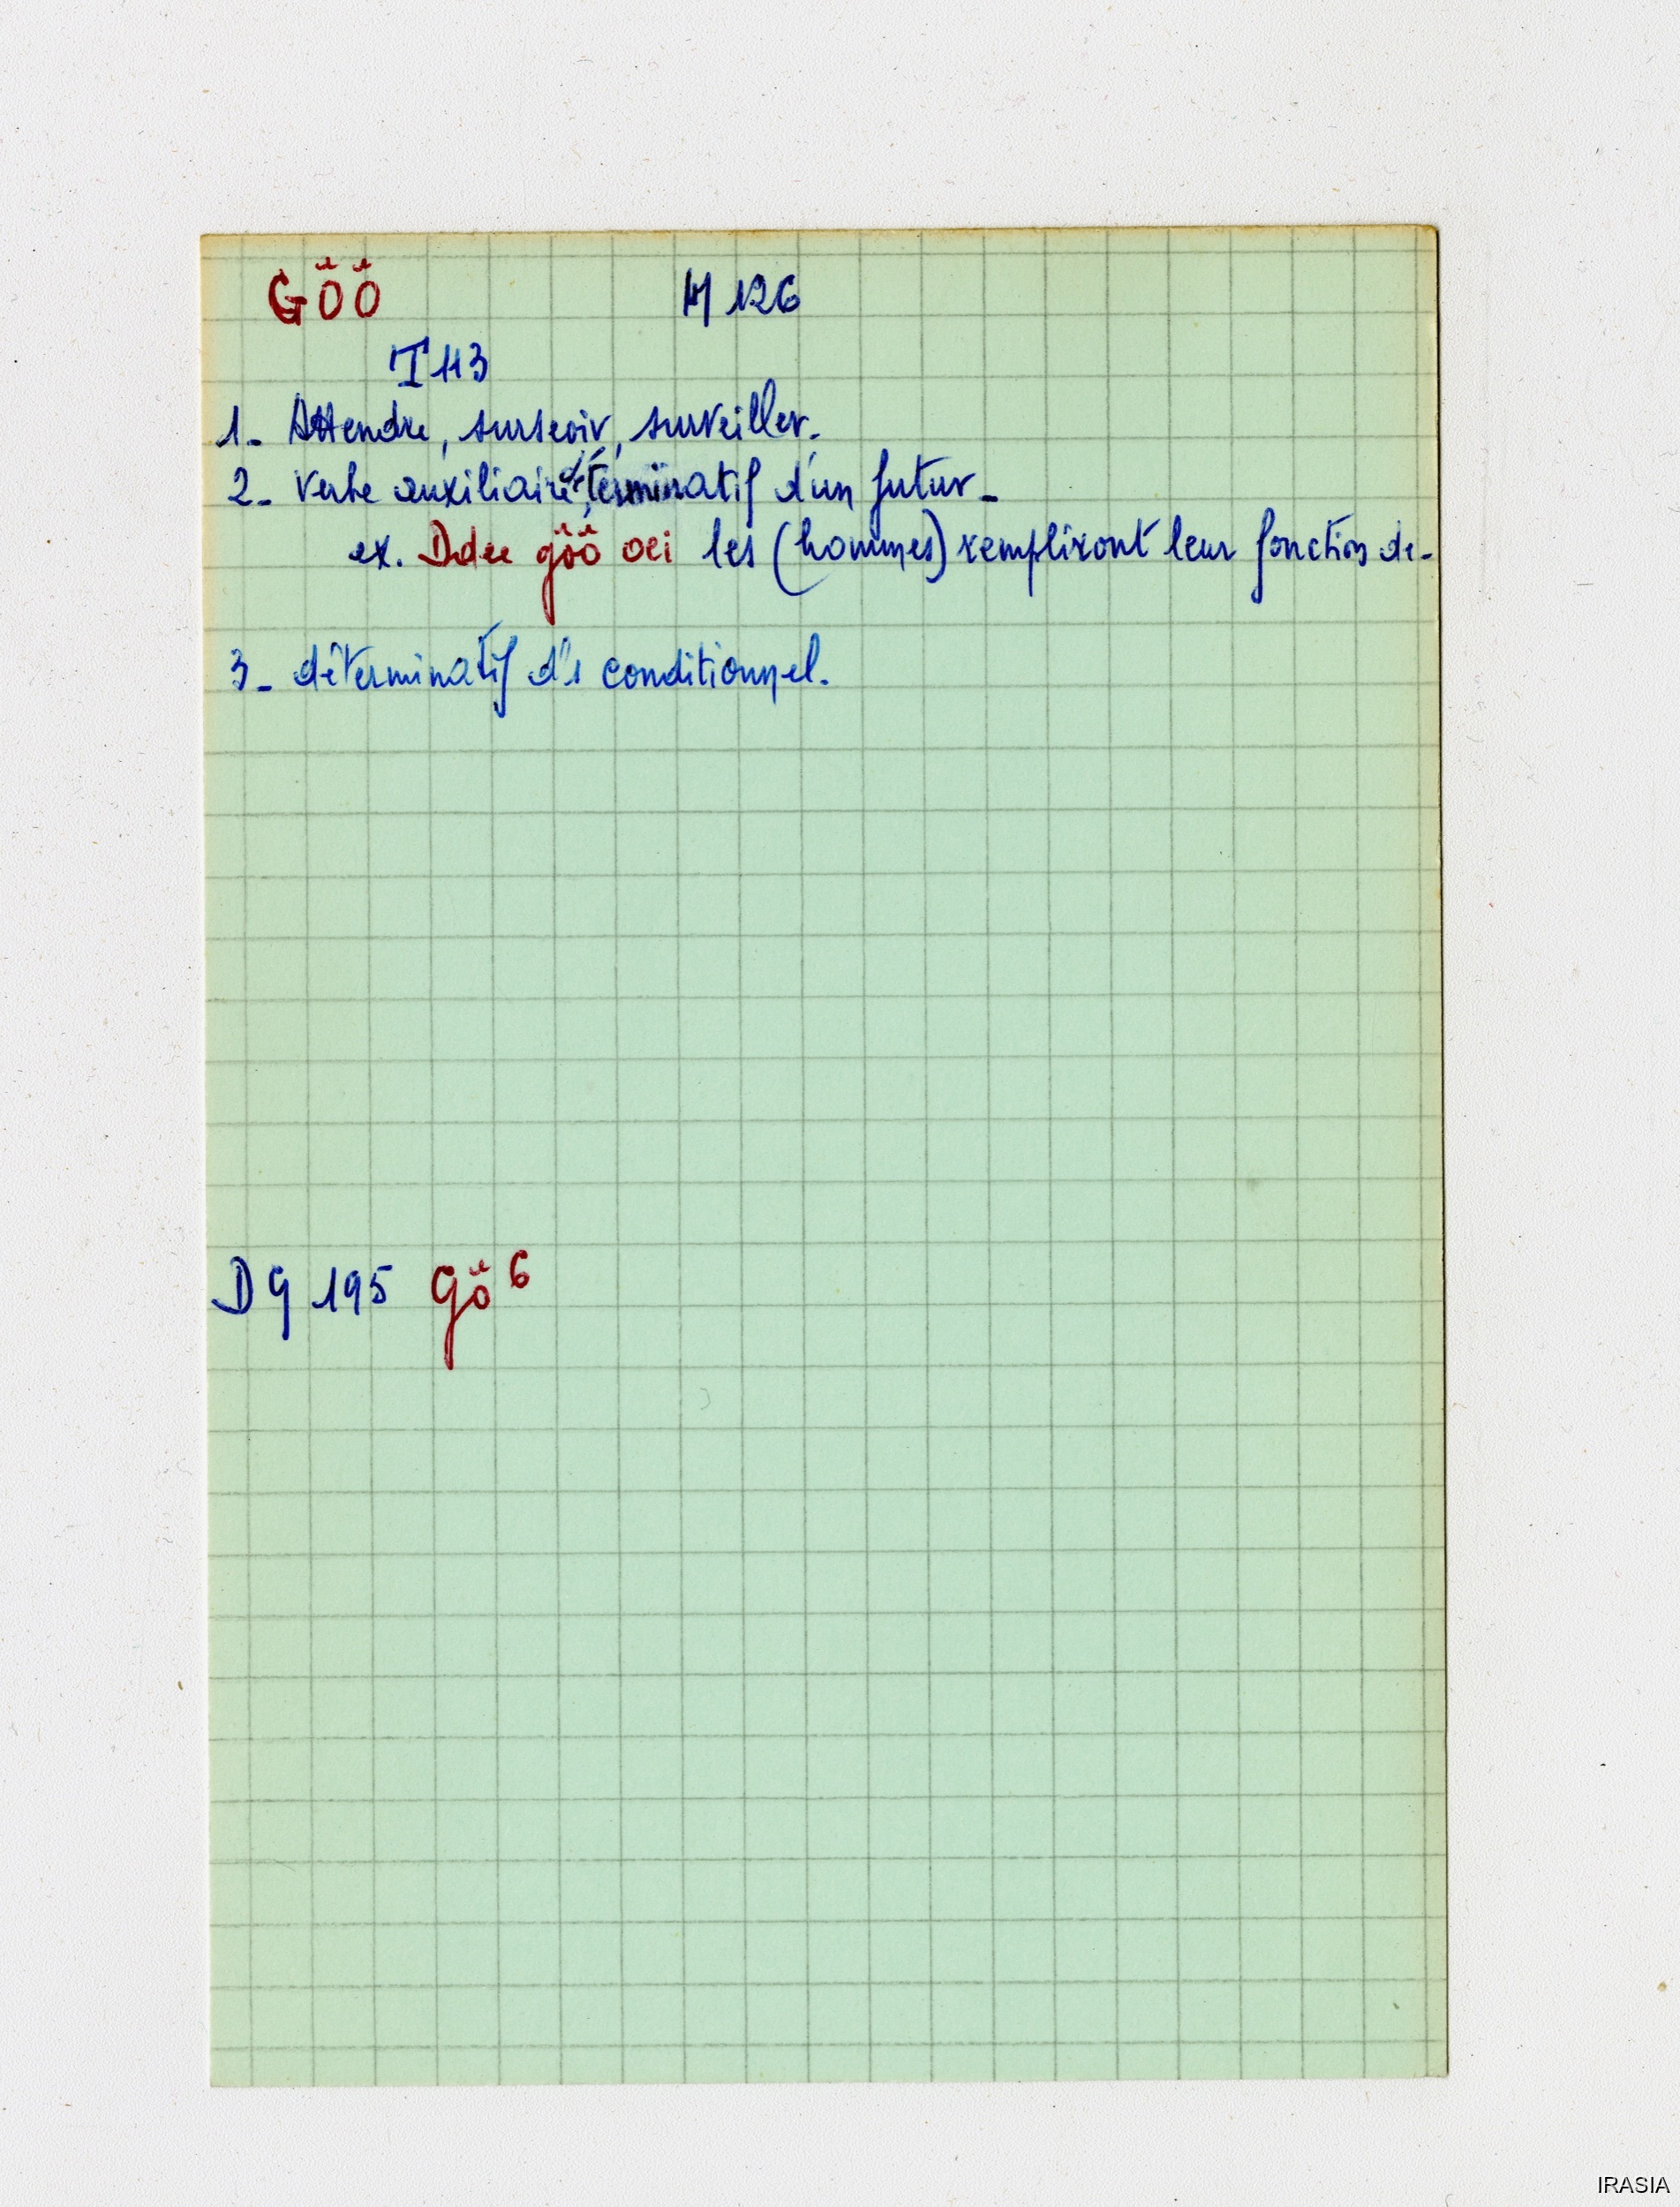 GÖ̆Ö̆ M 126
T 113
1_ Attendre, surseoir, surveiller.
2_ Verbe auxiliaire, déterminatif d'un futur_
ex. Ddee gö̆ö̆ oei les (hommes) rempliront leur fonction de_
3_ déterminatif d's conditionnel.
DG 195 Gö̆ 6
IRASIA